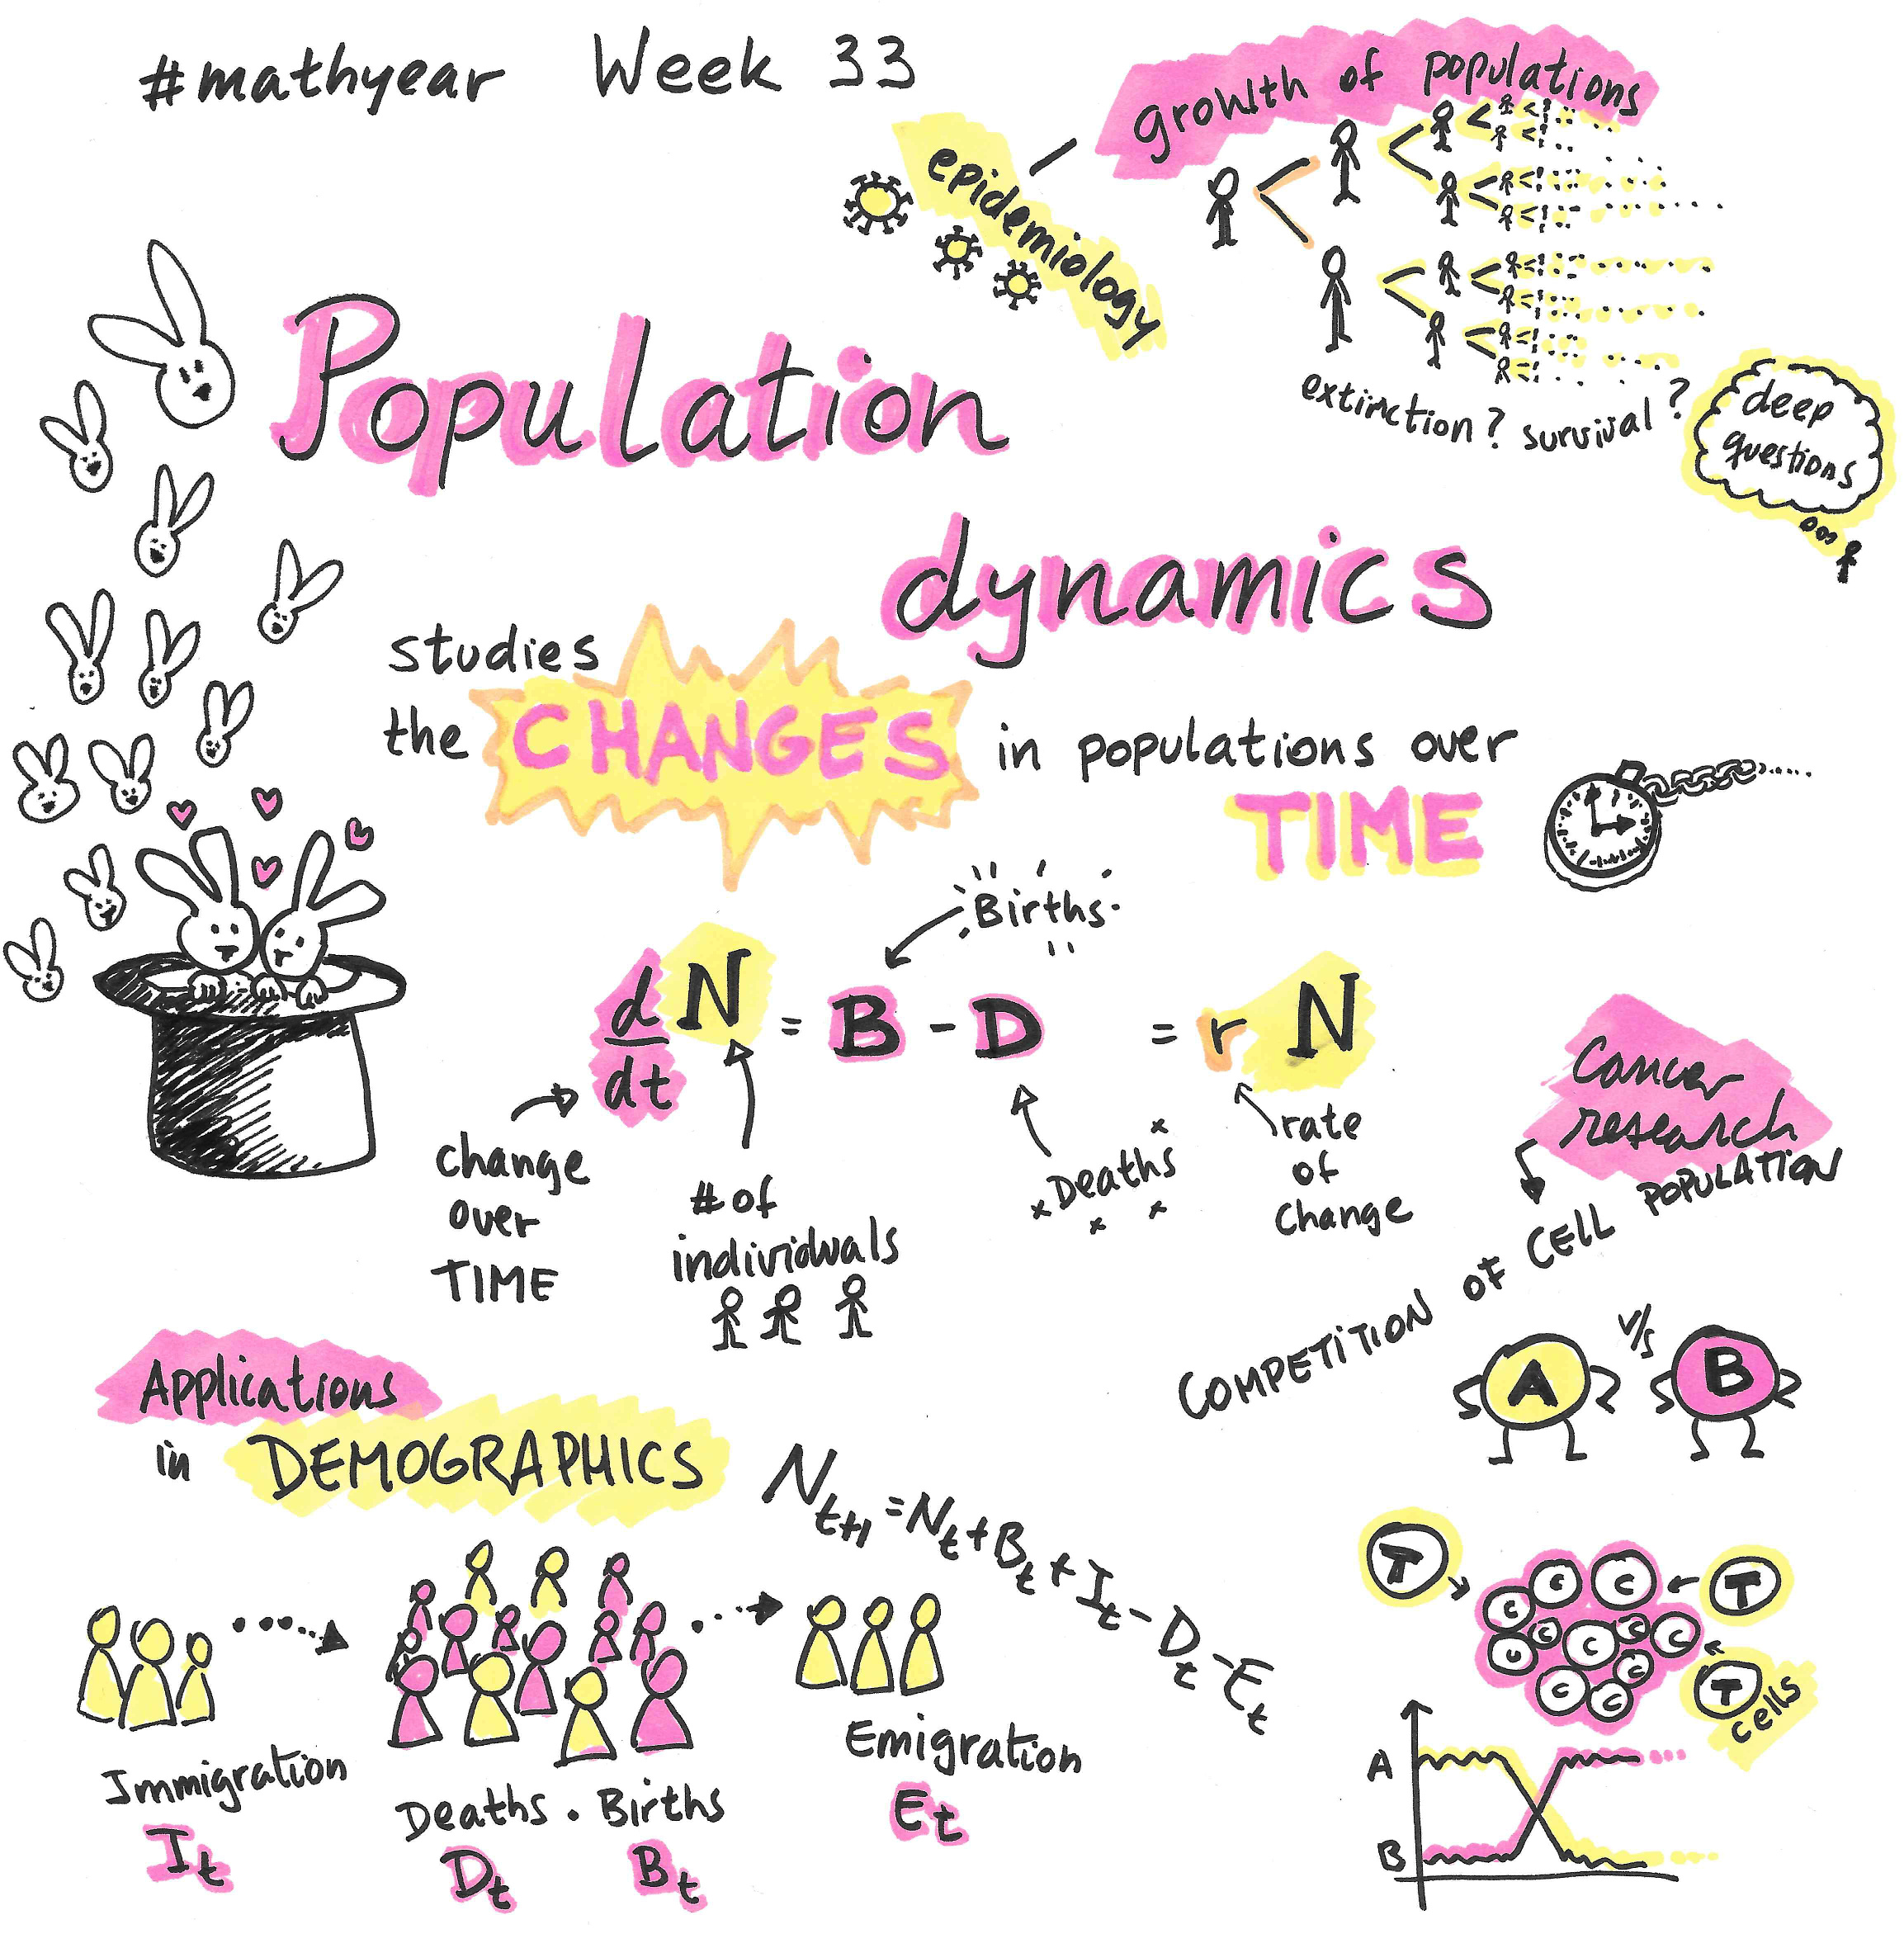 #mathyear Week 33
growth of populations
epidemiology
extinction? survival?
deep
questions
Population
dynamics
studies
the CHANGES in populations over
TIME
Births
d/dt N = B - D = r N
change
over
TIME
# of
individuals
Deaths
rate
of
change
Cancer
research
COMPETITION OF CELL POPULATION
A v/s B
Applications
in DEMOGRAPHICS
N_{t+1} = N_t + B_t + I_t - D_t - E_t
Immigration
I_t
Deaths . Births
D_t B_t
Emigration
E_t
T
C C
T
C
C C C C
C
C
C C
T
cells
A
B